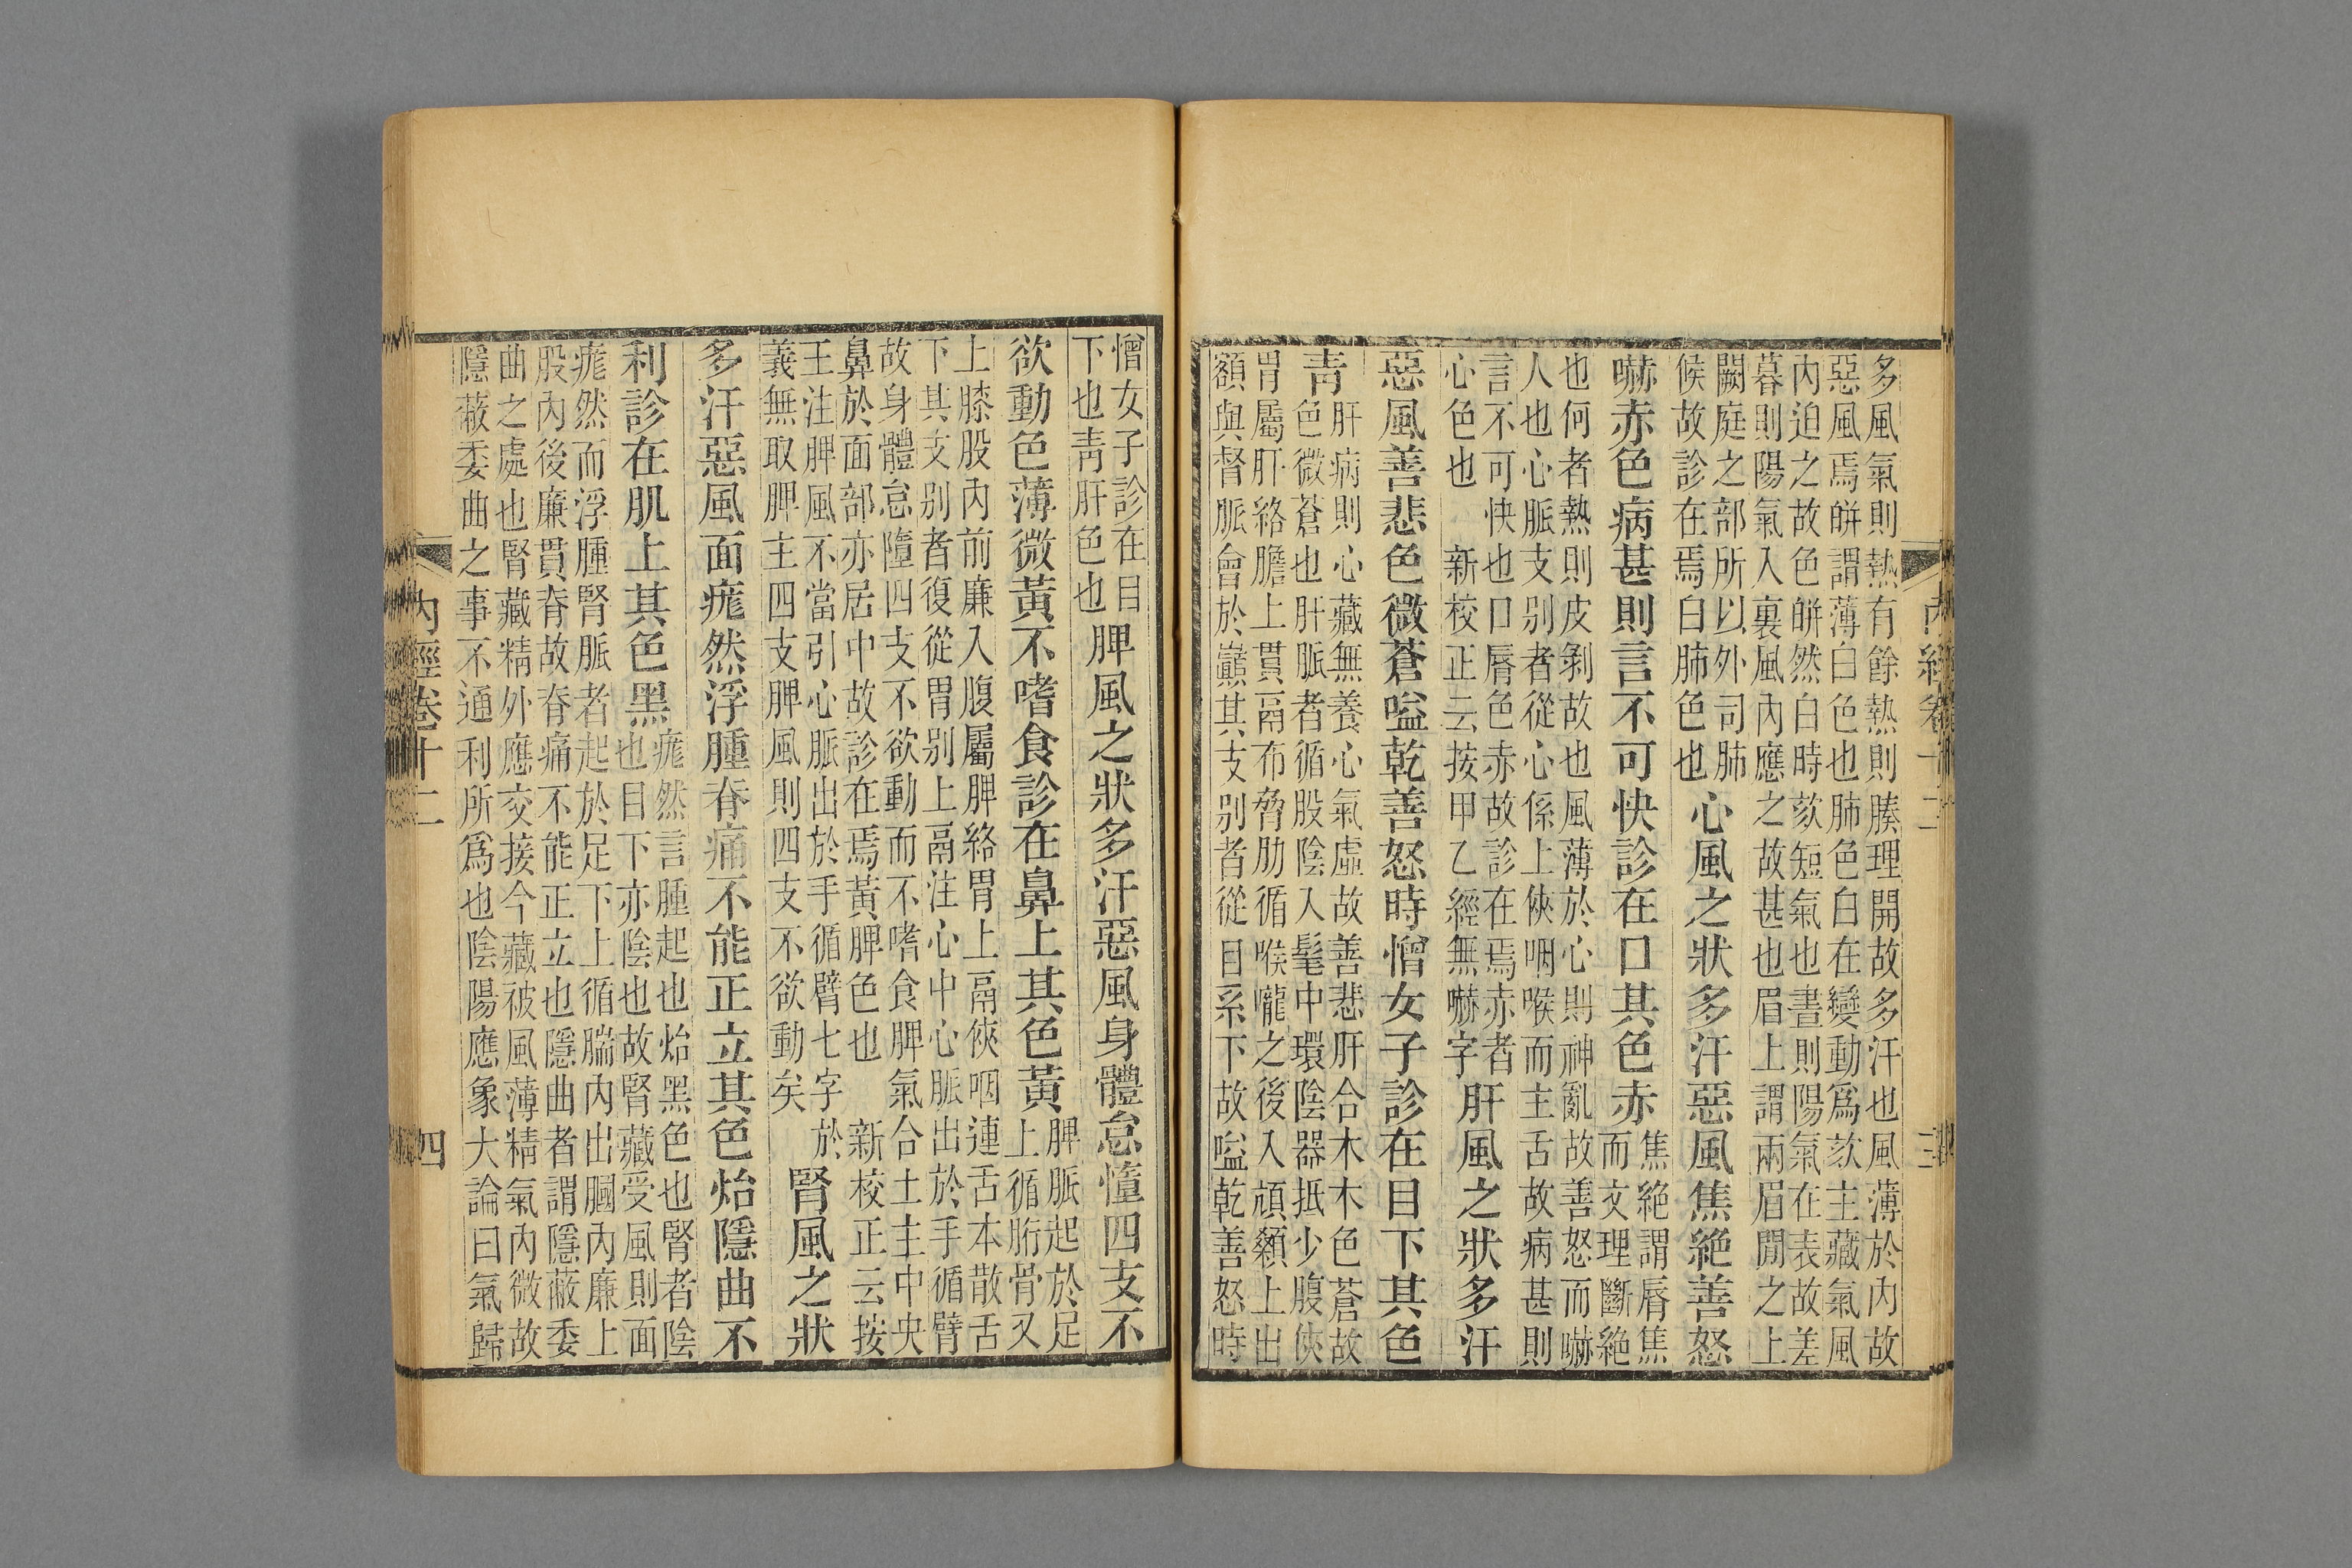 內經卷十二
三
多風氣則熱有餘熱則腠理開故多汗也風薄於內故
惡風焉皏謂薄白色也肺色白在變動爲欬主藏氣風
內迫之故色皏然白時欬短氣也晝則陽氣在表故差
暮則陽氣入裏風內應之故甚也眉上謂兩眉閒之上
闕庭之部所以外司肺
候故診在焉白肺色也
心風之狀多汗惡風焦絕善怒
嚇赤色病甚則言不可快診在口其色赤
焦絕謂脣焦
而文理斷絕
也何者熱則皮剝故也風薄於心則神亂故善怒而嚇
人也心脈支別者從心係上俠咽喉而主舌故病甚則
言不可快也口脣色赤故診在焉赤者
心色也　新校正云按甲乙經無嚇字
肝風之狀多汗
惡風善悲色微蒼嗌乾善怒時憎女子診在目下其色
靑
肝病則心藏無養心氣虛故善悲肝合木木色蒼故
色微蒼也肝脈者循股陰入髦中環陰器抵少腹俠
胃屬肝絡膽上貫鬲布脅肋循喉嚨之後入頏顙上出
額與督脈會於巔其支別者從目系下故嗌乾善怒時
憎女子診在目
下也靑肝色也
脾風之狀多汗惡風身體怠憧四支不
欲動色薄微黃不嗜食診在鼻上其色黃
脾脈起於足
上循胻骨又
上膝股內前廉入腹屬脾絡胃上鬲俠咽連舌本散舌
下其支別者復從胃別上鬲注心中心脈出於手循臂
故身體怠隨四支不欲動而不嗜食脾氣合土主中央
鼻於面部亦居中故診在焉黃脾色也　新校正云按
王注脾風不當引心脈出於手循臂七字　於
義無取脾主四支脾風則四支不欲動矣
腎風之狀
多汗惡風面痝然浮腫脊痛不能正立其色炲隱曲不
利診在肌上其色黑
痝然言腫起也炲黑色也腎者陰
也目下亦陰也故腎藏受風則面
痝然而浮腫腎脈者起於足下上循腨內出膕內廉上
股內後廉貫脊故脊痛不能正立也隱曲者謂隱蔽委
曲之處也腎藏精外應交接今藏被風薄精氣內微故
隱蔽委曲之事不通利所爲也陰陽應象大論曰氣歸
內經卷十二
四